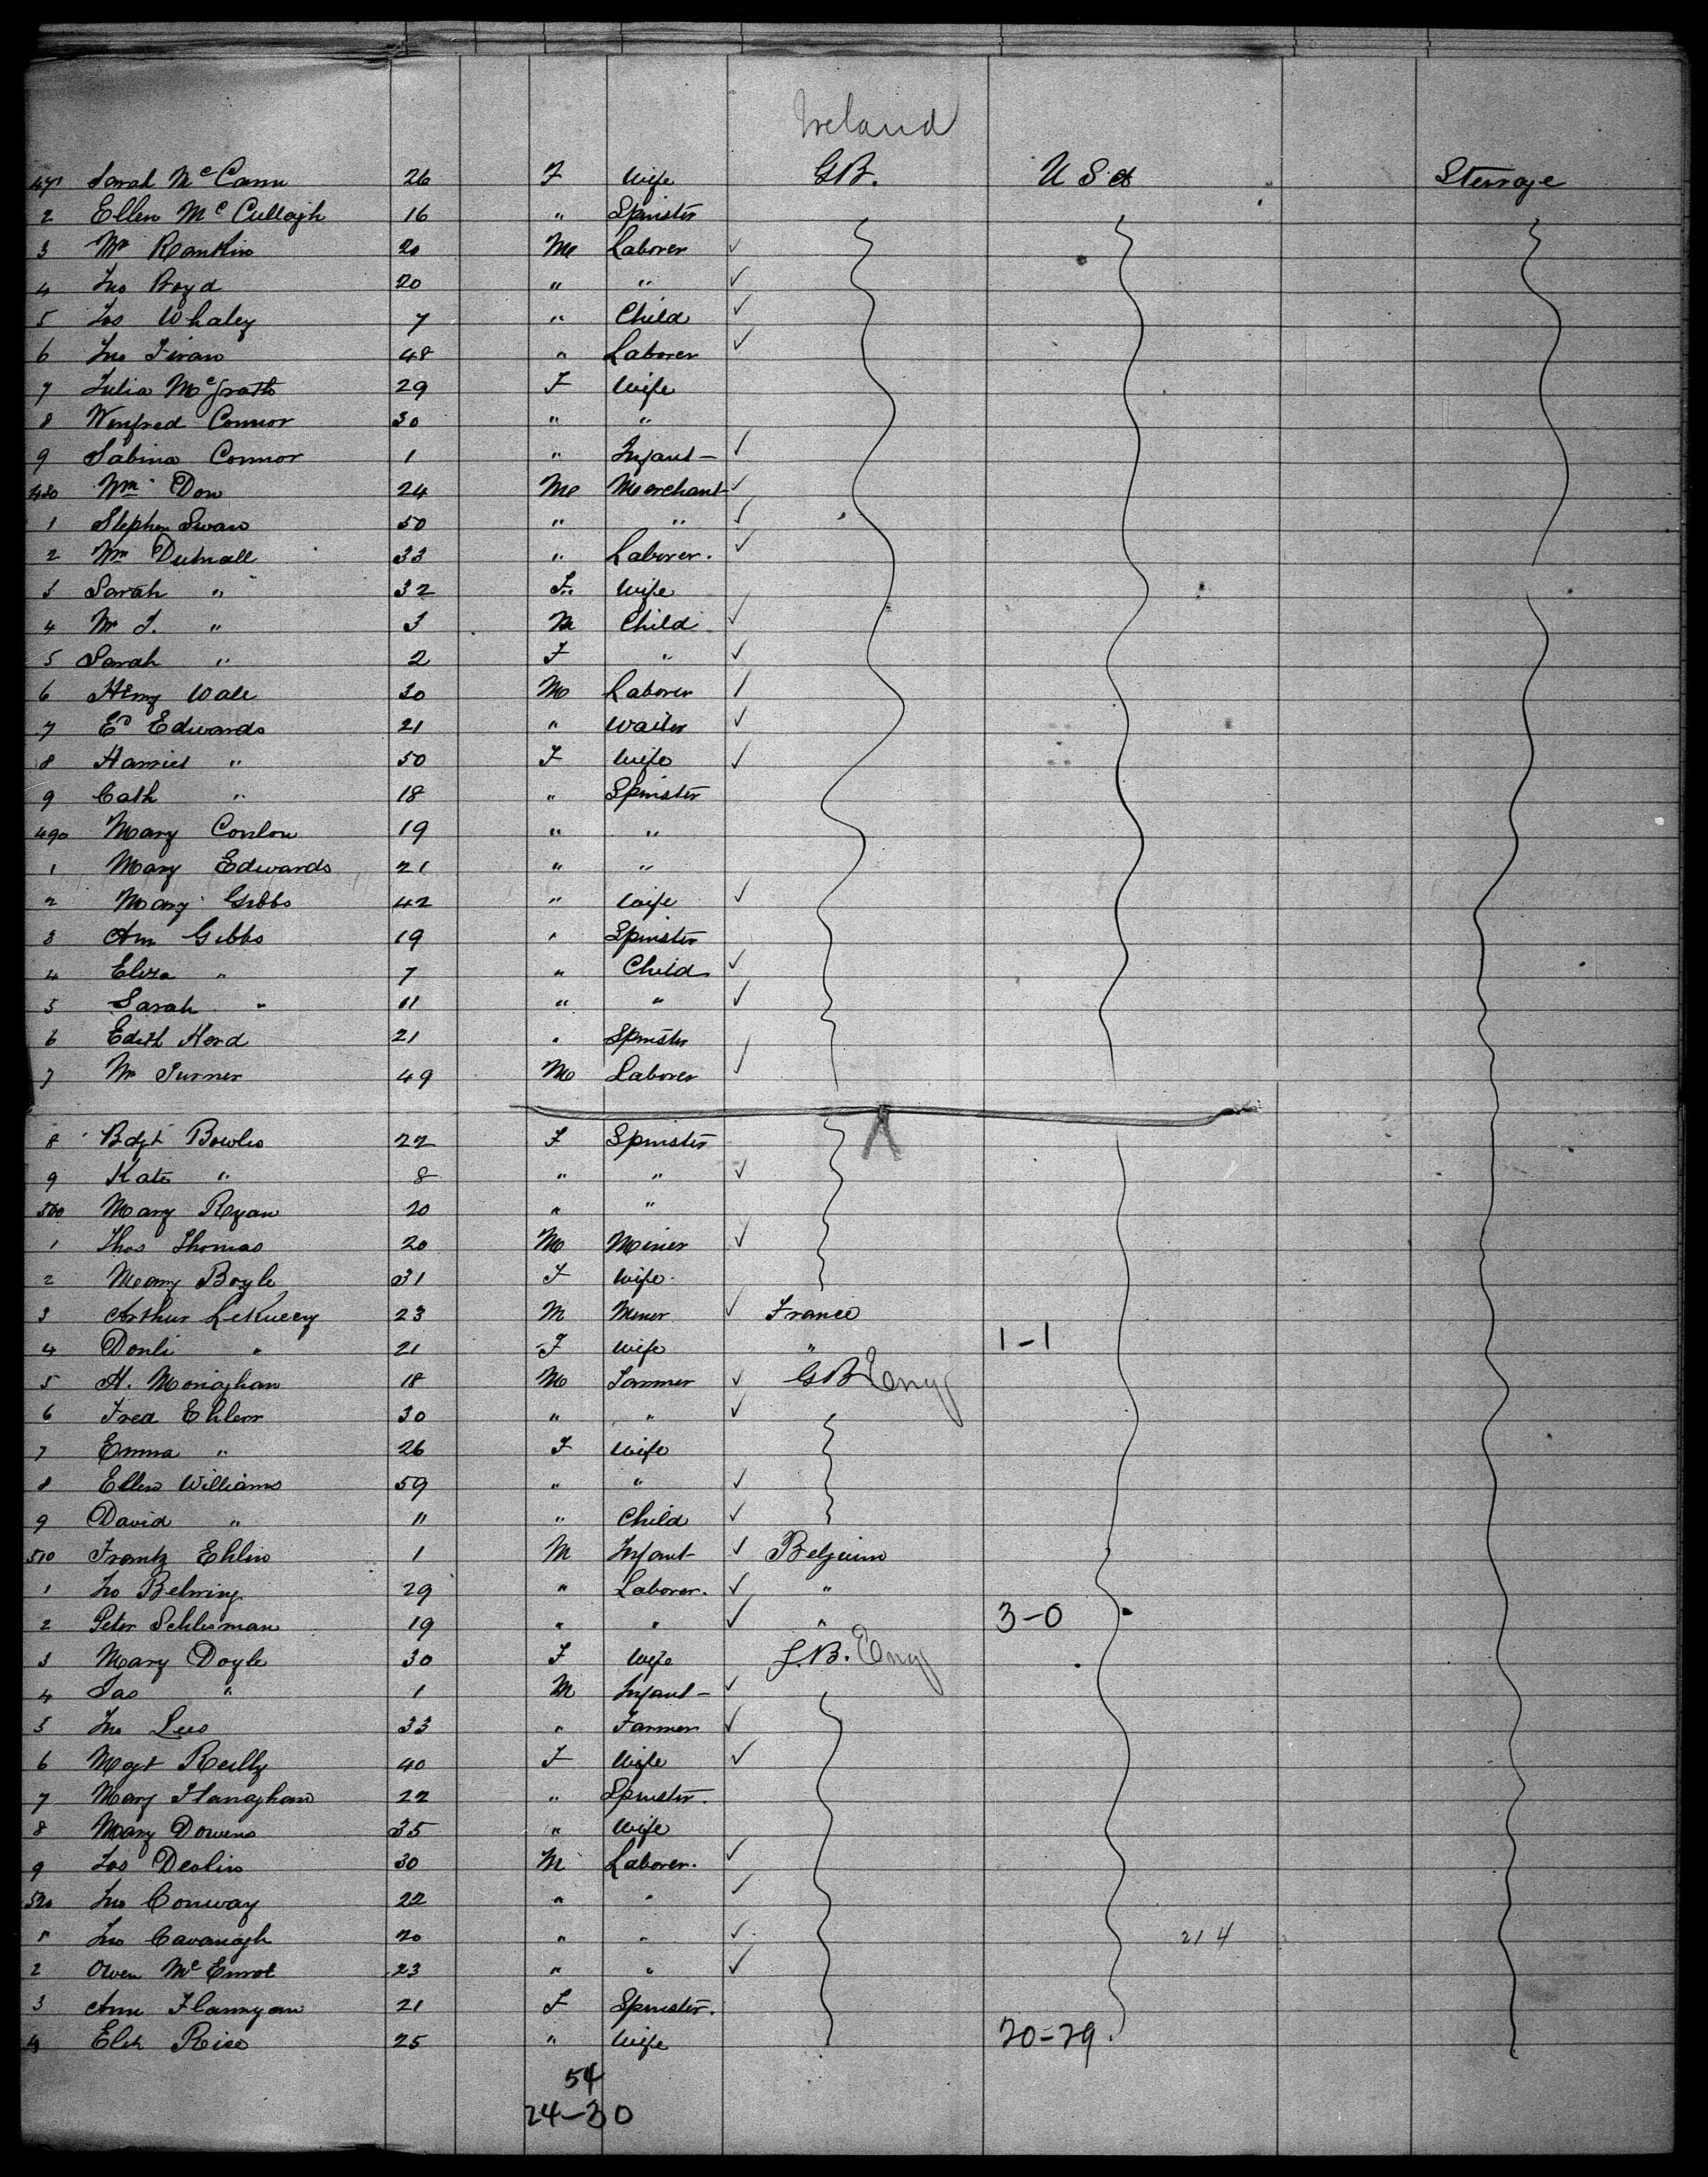 Ireland
471 Sarah McCann 26 F Wife GB. U S A Sterrage
2 Ellen McCullagh 16 " Spinster
3 Wm Rankin 20 M Laborer ✓
4 Jno Boyd 20 " " ✓
5 Jos Whaley 7 " Child ✓
6 Jno 48 " Laborer ✓
7 Julia McGrath 29 F Wife
8 Winfred Connor 30 " "
9 Sabina Connor 1 " Infant ✓
480 Wm Dow 24 M Merchant ✓
1 Stephen Swan 50 " " ✓
2 Wm Dutnall 33 " Laborer. ✓
3 Sarah " 32 F Wife
4 Wm J. " 3 M Child ✓
5 Sarah " 2 F " ✓
6 Henry Wale 30 M Laborer ✓
7 Ed Edwards 21 " Waiter ✓
8 Harriet " 50 F Wife ✓
9 Cath " 18 " Spinster
490 Mary Conlon 19 " "
1 Mary Edwards 21 " "
2 Mary Gibbs 42 " Wife ✓
3 Ann Gibbs 19 " Spinster
4 Eliza " 7 " Child ✓
5 Sarah " 11 " " ✓
6 Edith Herd 21 " Spinster
7 Wm Turner 49 M Laborer ✓
8 Bdgt Bowles 22 F Spinster
9 Kate " 8 " " ✓
500 Mary Ryan 20 " "
1 Thos Thomas 20 M Miner ✓
2 Mary Boyle 31 F Wife
3 Arthur 23 M Miner ✓ France
4 " 21 F Wife " 1-1
5 H. Monaghan 18 M Farmer ✓ GB Eng
6 Fred Ehlem 30 " " ✓
7 Emma " 26 F Wife
8 Ellen Williams 59 " " ✓
9 David " 11 " Child ✓
510 Frantz Ehlin 1 M Infant ✓ Belgium
1 Jno Behring 29 " Laborer. ✓ "
2 Peter Schlisman 19 " " ✓ " 3-0
3 Mary Doyle 30 F Wife G.B. Eng
4 Jas " 1 M Infant ✓
5 Jno Lees 33 " Farmer ✓
6 Mgt Reilly 40 F Wife ✓
7 Mary Flanaghan 22 " Spinster.
8 Mary Dowens 35 " Wife
9 Jos Devlin 30 M Laborer. ✓
520 Jno Conway 22 " " ✓
1 Jno Cavanagh 20 " " ✓ 214
2 Owen 23 " " ✓
3 Ann Flannyan 21 F Spinster.
4 Eliz Rice 25 " Wife 20-29
54
24-30